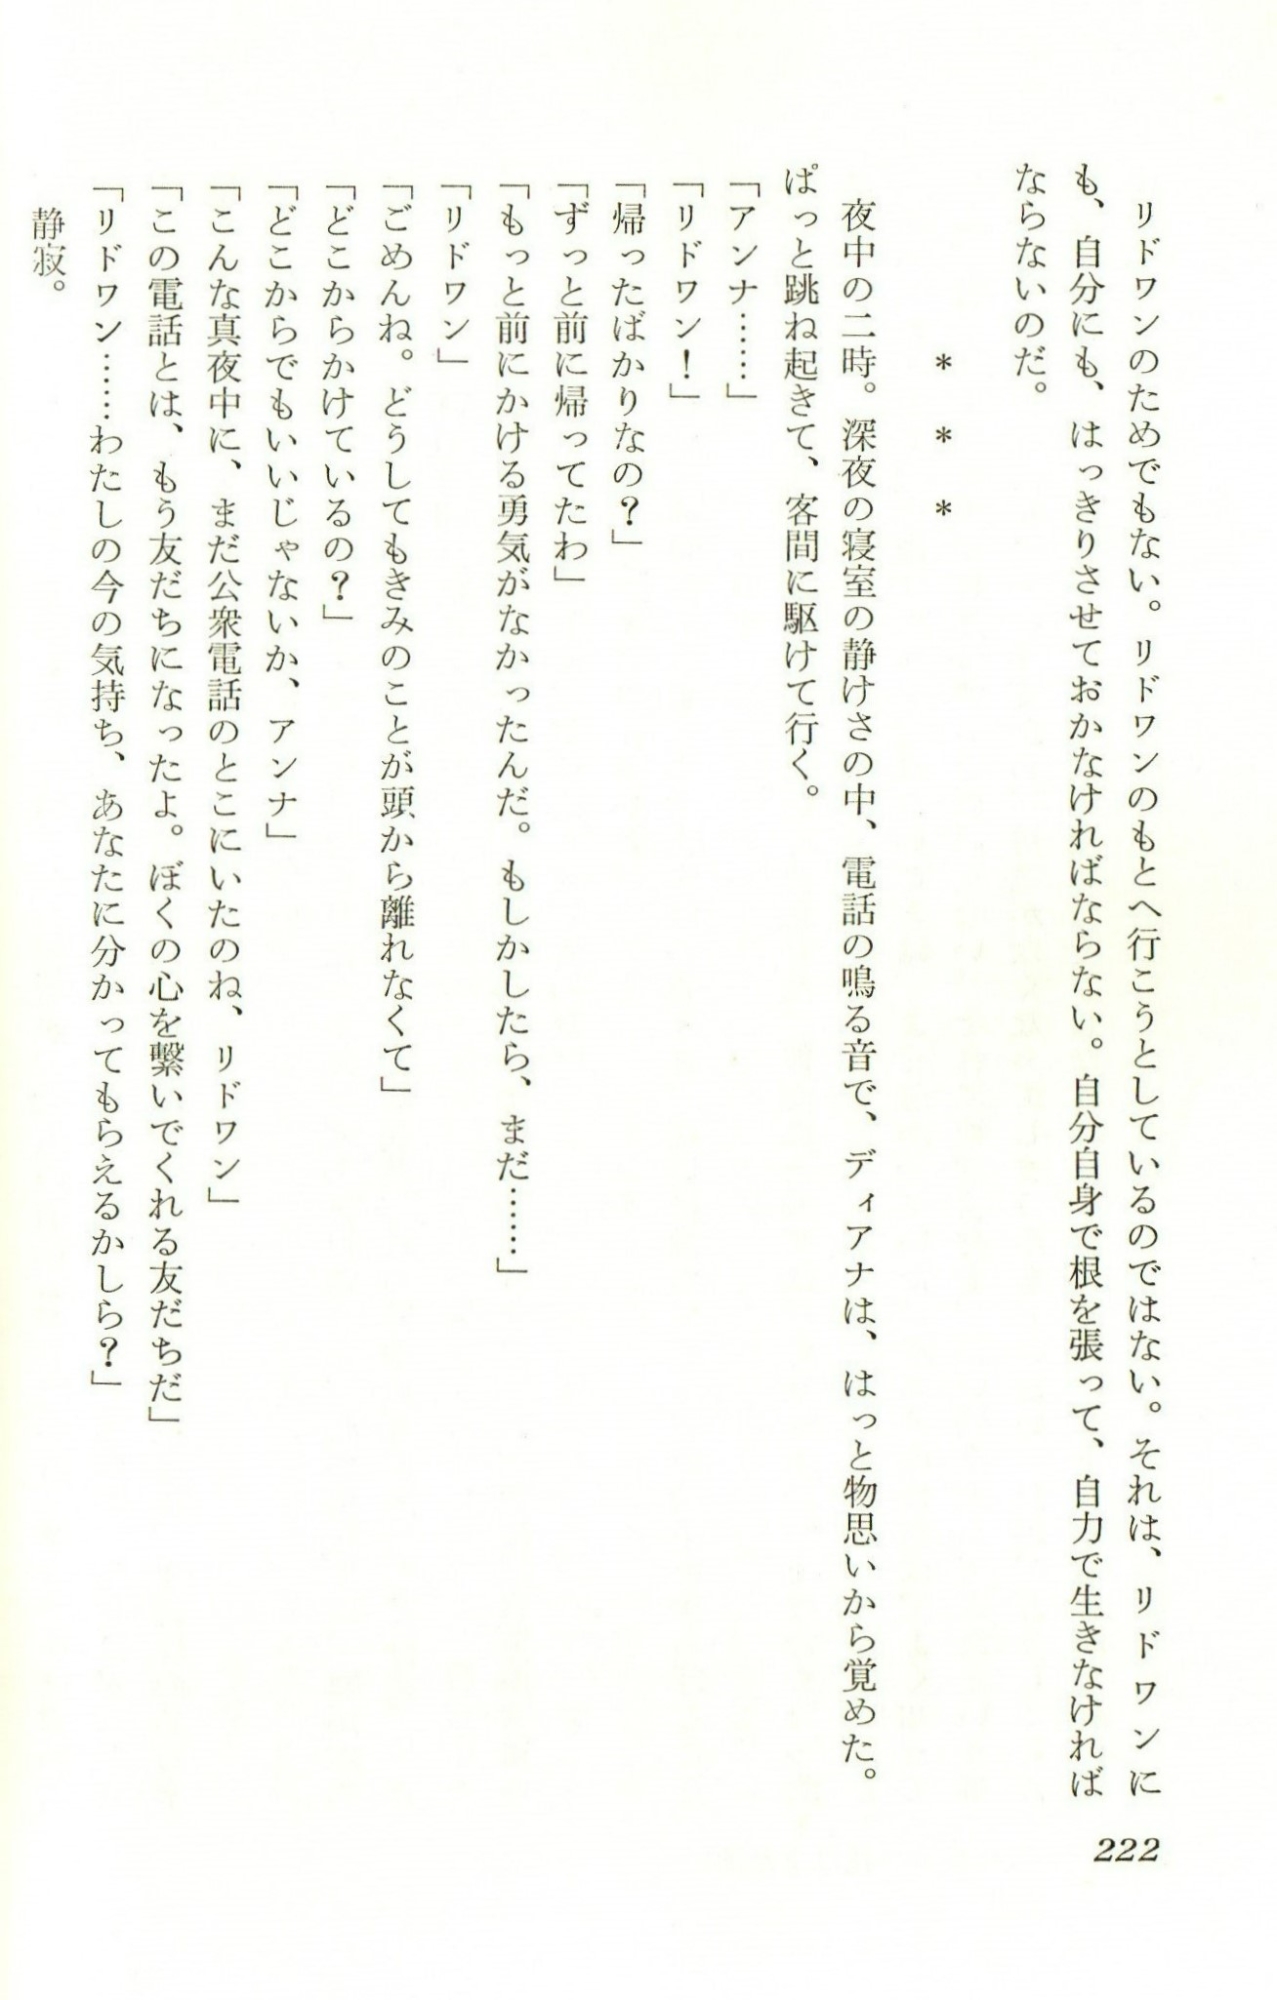 リドワンのためでもない。リドワンのもとへ行こうとしているのではない。それは、リドワンに
も、自分にも、はっきりさせておかなければならない。自分自身で根を張って、自力で生きなければ
ならないのだ。
＊　＊　＊
夜中の二時。深夜の寝室の静けさの中、電話の鳴る音で、ディアナは、はっと物思いから覚めた。
ぱっと跳ね起きて、客間に駆けて行く。
「アンナ……」
「リドワン！」
「帰ったばかりなの？」
「ずっと前に帰ってたわ」
「もっと前にかける勇気がなかったんだ。もしかしたら、まだ……」
「リドワン」
「ごめんね。どうしてもきみのことが頭から離れなくて」
「どこからかけているの？」
「どこからでもいいじゃないか、アンナ」
「こんな真夜中に、まだ公衆電話のとこにいたのね、リドワン」
「この電話とは、もう友だちになったよ。ぼくの心を繋いでくれる友だちだ」
「リドワン……わたしの今の気持ち、あなたに分かってもらえるかしら？」
静寂。
222